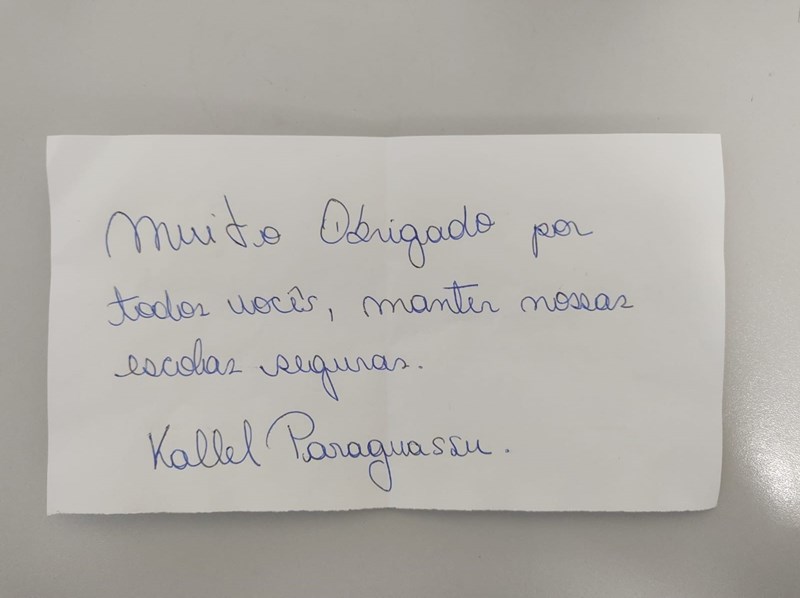 Muito Obrigado por
todos vocês, manter nossas
escolas seguras.
Kallel Paraguassu.